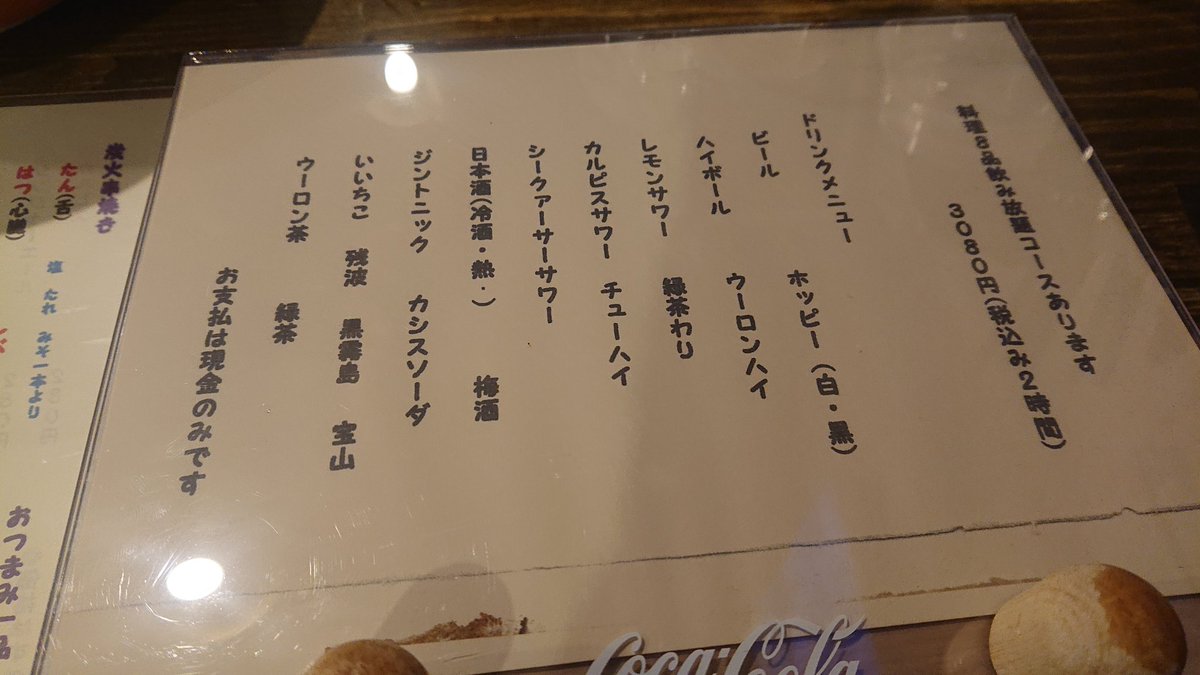 料理8品飲み放題コースあります
3080円(税込み2時間)
ドリンクメニュー
ビール ホッピー (白・黒)
ハイボール ウーロンハイ
レモンサワー 緑茶わり
カルピスサワー チューハイ
シークァーサーサワー
日本酒(冷酒・熱・) 梅酒
ジントニック カシスソーダ
いいちこ 残波 黒霧島 宝山
ウーロン茶 緑茶
お支払は現金のみです
炭火串焼き
たん(舌) 塩 たれ みそ一本より
はつ(心臓)
おつまみ一品
Coca-Cola